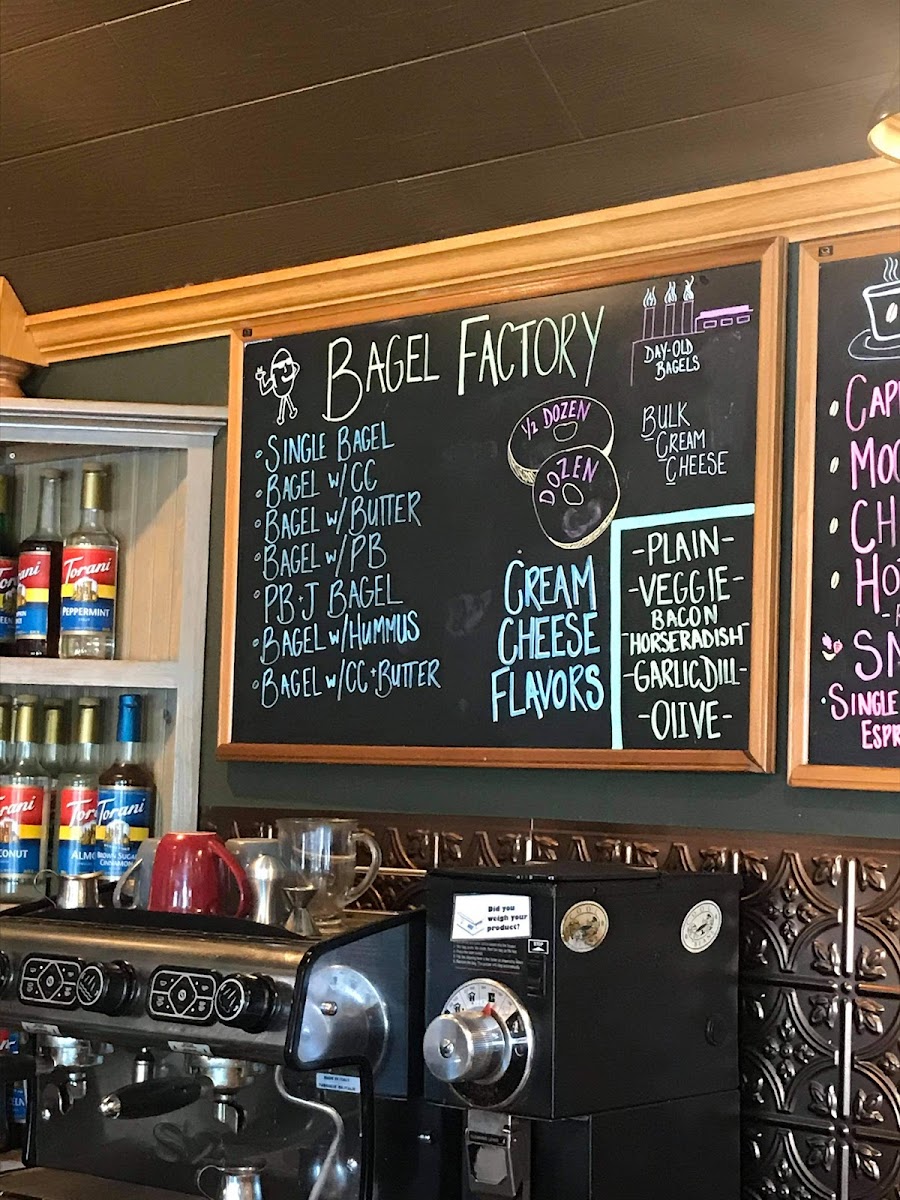 BAGEL FACTORY
DAY-OLD
BAGELS
1/2 DOZEN
DOZEN
BULK
CREAM
CHEESE
SINGLE BAGEL
BAGEL W/CC
BAGEL W/BUTTER
BAGEL W/PB
PB+J BAGEL
BAGEL W/HUMMUS
BAGEL W/CC+BUTTER
CREAM
CHEESE
FLAVORS
-PLAIN-
-VEGGIE-
BACON
-HORSERADISH-
-GARLIC DILL-
-OlIVE-
SINGLE
Torani
Torani
PEPPERMINT
Torani
Torani
BROWN SUGAR
CINNAMON
Did you
weigh your
product?